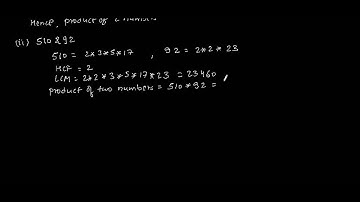 Hence, product of 2 numbers
(ii) 510 & 92
510 = 2*3*5*17 , 92 = 2*2*23
HCF = 2
LCM = 2*2*3*5*17*23 = 23460
product of two numbers = 510*92 =